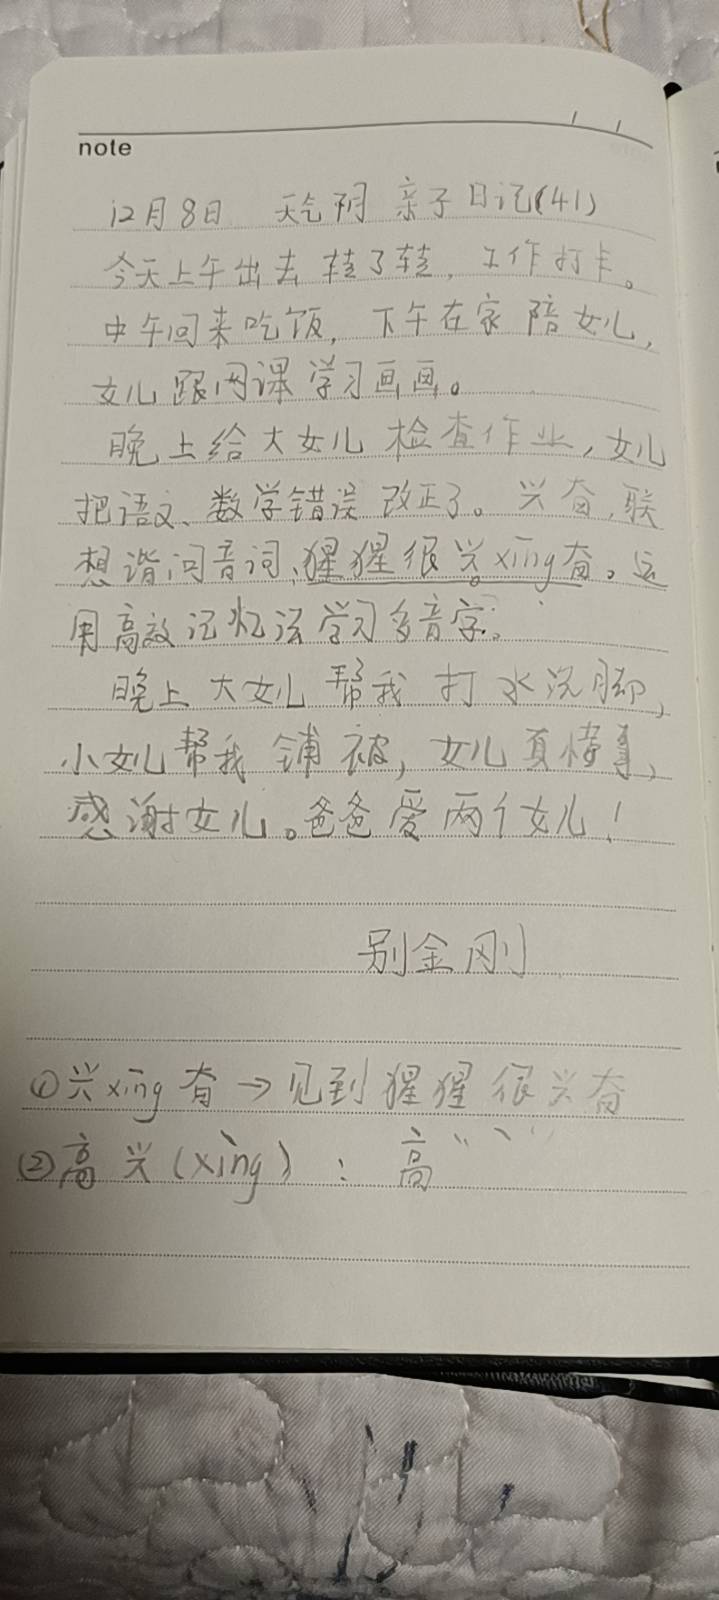 note
12月8日 天气阴 亲子日记(41)
今天上午出去转了转,工作打卡。
中午回来吃饭,下午在家陪女儿,
女儿跟网课学习画画。
晚上给大女儿检查作业,女儿
把语文、数学错误改正了。兴奋,联
想谐同音词,猩猩很兴xīng奋。运
用高效记忆法学习多音字。
晚上大女儿帮我打水洗脚,
小女儿帮我铺被,女儿真懂事,
感谢女儿。爸爸爱两个女儿!
别金刚
①兴xīng奋→见到猩猩很兴奋
②高兴(xìng):高